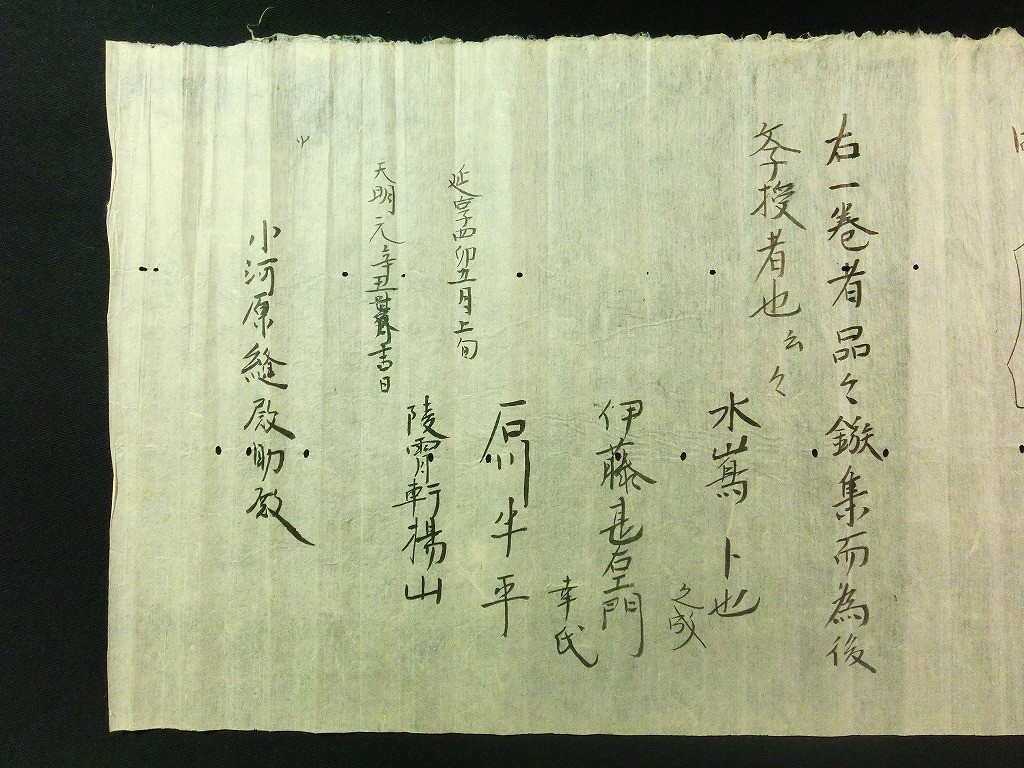 右一巻者品々鏃集而為後
季授者也云々
水嶌卜也
之成
伊藤甚右エ門
幸氏
原半平
延享四卯五月上旬
陵霄軒楊山
天明元辛丑暮雪日
小河原縫殿助殿